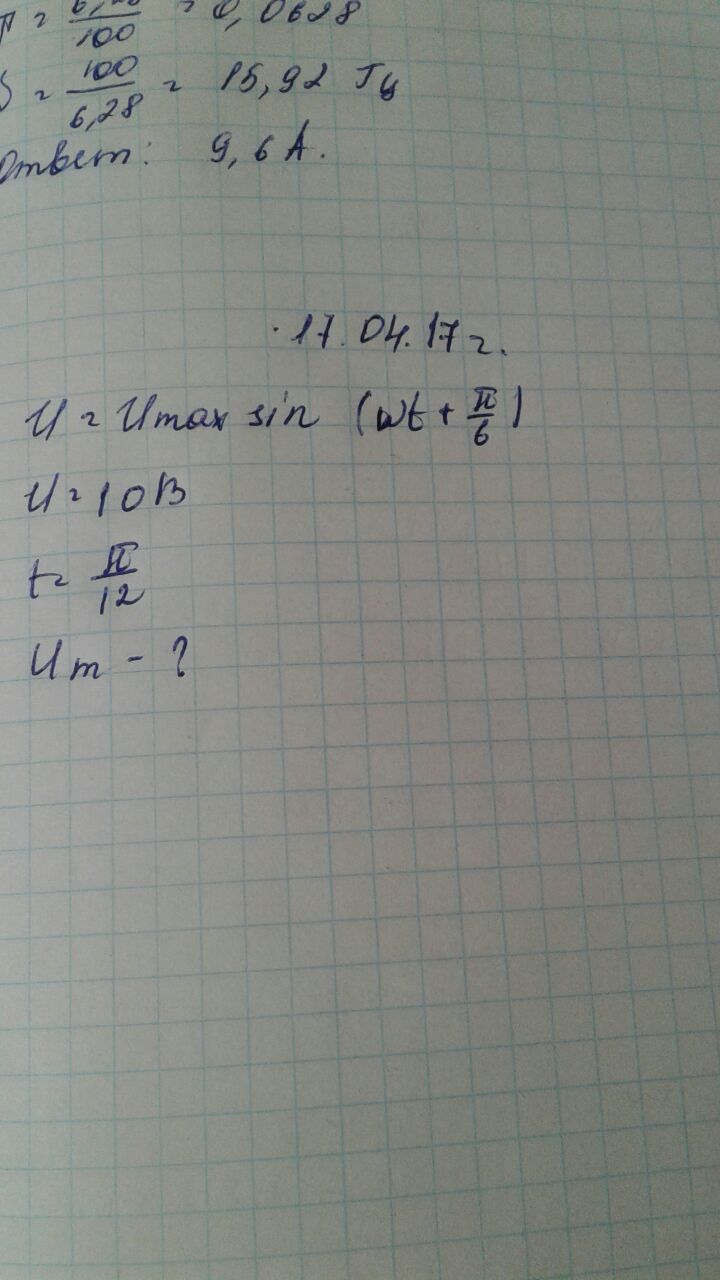 T = 6,28/100 = 0,0628
= 100/6,28 = 15,92 Гц
Ответ: 9,6 А.
17.04.17 г.
U = Umax sin (ωt + π/6)
U = 10 В
t = π/12
Um - ?